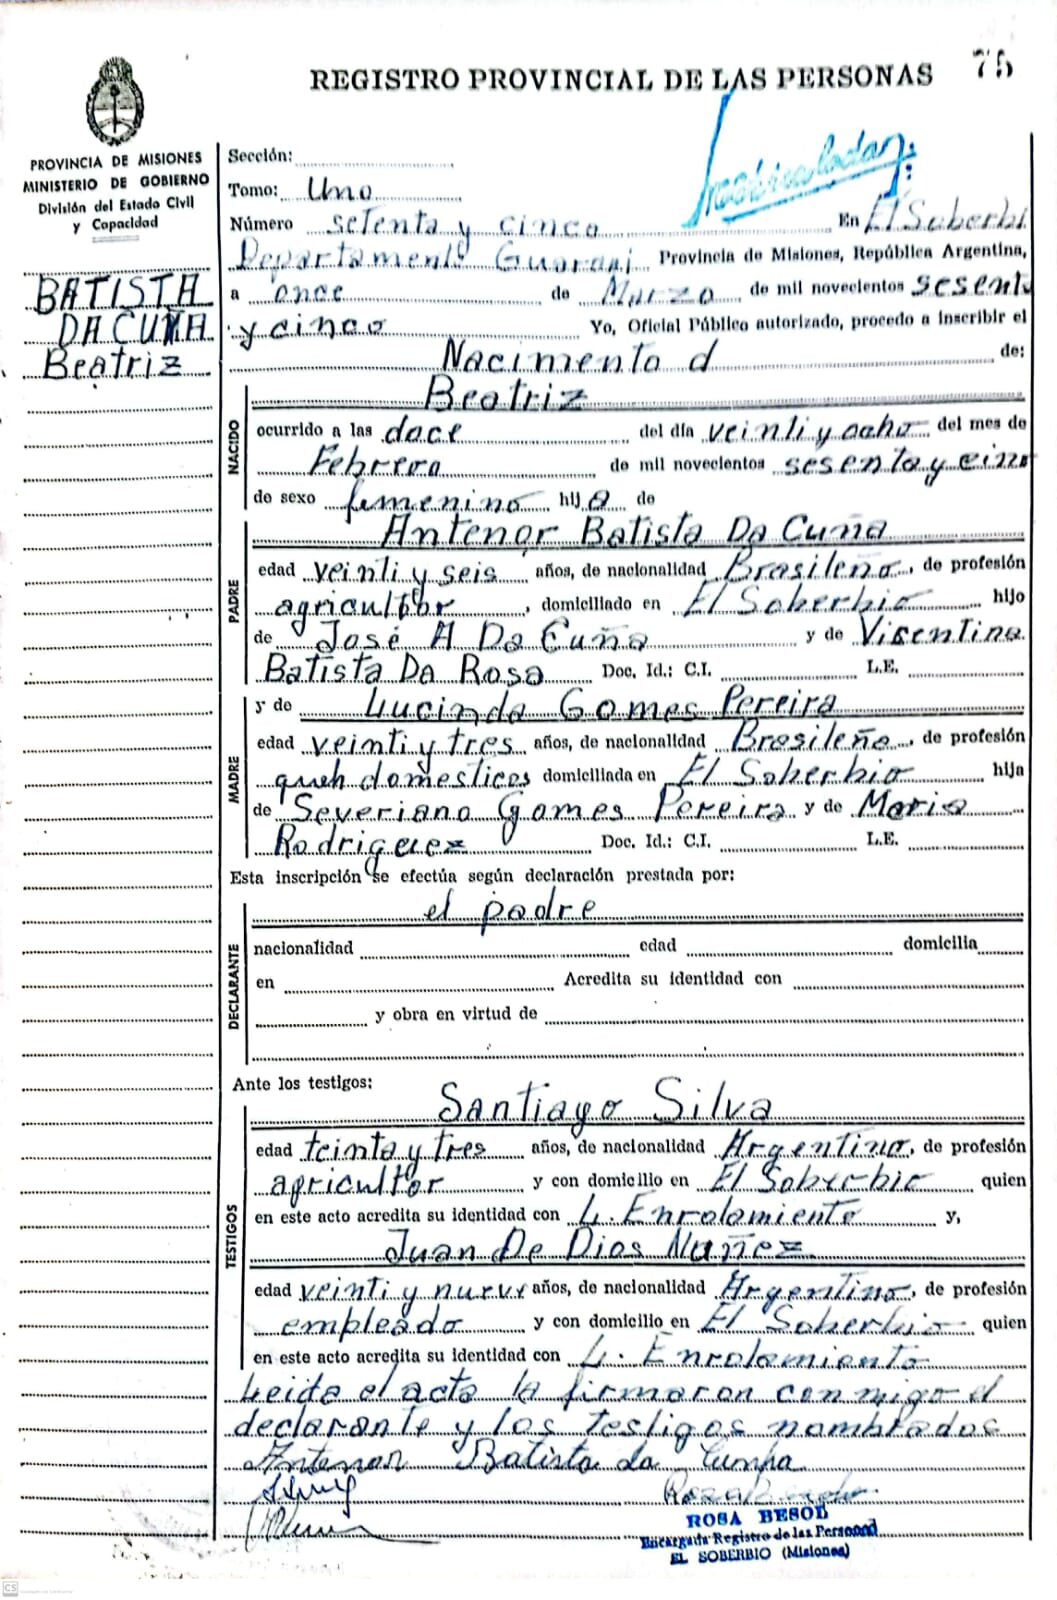 75
REGISTRO PROVINCIAL DE LAS PERSONAS
PROVINCIA DE MISIONES
MINISTERIO DE GOBIERNO
División del Estado Civil
y Capacidad
BATISTA
DA CUÑA
Beatriz
Sección:
Tomo: Uno
Número setenta y cinco En El Soberbi
Departamento Guarani Provincia de Misiones, República Argentina,
a once de Marzo de mil novecientos sesent
y cinco Yo, Oficial Público autorizado, procedo a inscribir el
Nacimento d de:
NACIDO
Beatriz
ocurrido a las doce del día veinti y ocho del mes de
Febrero de mil novecientos sesenta y cinc
de sexo femenino hija de
PADRE
Antenor Batista Da Cuña
edad veinti y seis años, de nacionalidad Brasileño, de profesión
agricultor, domiciliado en El Soberbio hijo
de José A Da Cuña y de Vicentina
Batista Da Rosa Doc. Id.: C.I. L.E.
MADRE
y de Lucinda Gomes Pereira
edad veinti y tres años, de nacionalidad Brasileña, de profesión
queh domesticos domiciliada en El Soberbio hija
de Severiano Gomes Pereira y de Maria
Rodriguez Doc. Id.: C.I. L.E.
Esta inscripción se efectúa según declaración prestada por:
DECLARANTE
el padre
nacionalidad edad domicilia
en Acredita su identidad con
y obra en virtud de
Ante los testigos:
TESTIGOS
Santiago Silva
edad teinta y tres años, de nacionalidad Argentino, de profesión
agricultor y con domicilio en El Soberbio quien
en este acto acredita su identidad con L. Enrolamiento y,
Juan De Dios Nuñez
edad veinti y nueve años, de nacionalidad Argentino, de profesión
empleado y con domicilio en El Soberbio quien
en este acto acredita su identidad con L. Enrolamiento
Leida el acta la firmaron conmigo el
declarante y los testigos nombrados
Antenor Batista da Cunha
ROSA BESOL
Encargada Registro de las Personas
EL SOBERBIO (Misiones)
CS